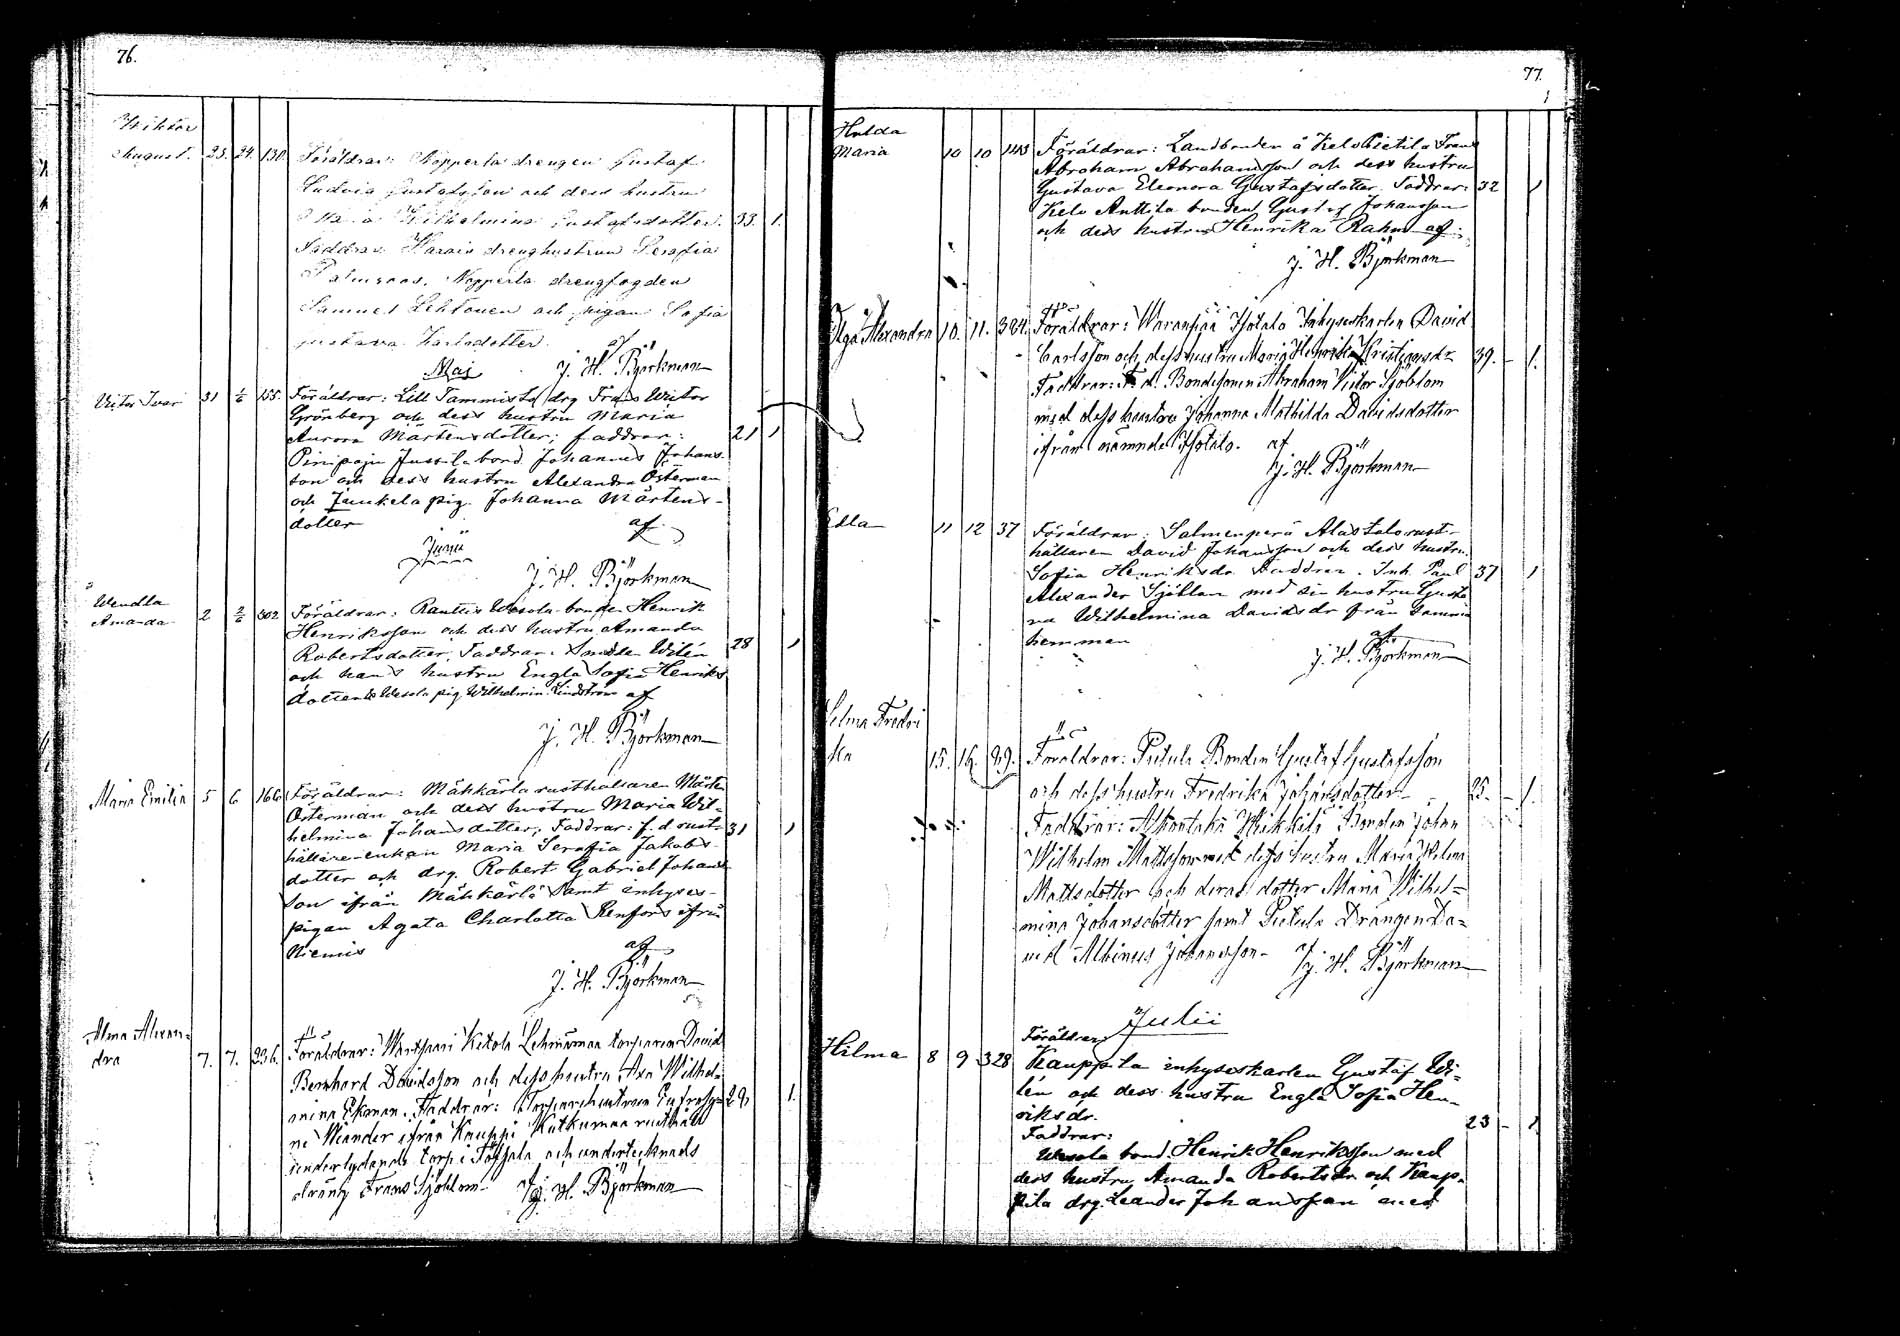 76.
Wiktor
August. 23. 24. 130. Föräldrar: Nopperla drengen Gustaf
Ludvig Gustafsson och dess hustru
Wilhelmina Gustafsdotter. 33. 1.
Faddrar: Karais drenghustrun Serafia
Palmroos, Nopperla drengfogden
Samuel Lehtonen och pigan Sofia
Gustava Karlsdotter. af
J. H. Björkman
Maj
Victor Ivar 31 1/6 155. Föräldrar: Lill Tammisto drg Frans Victor
Grönberg och dess hustru Maria
Aurora Mårtensdotter; faddrar: 21 1
Pinipaju Jussila bond. Johannes Johans-
son och dess hustru Alexandra Österman
och Junkela pig. Johanna Mårtens-
dotter af
Junii
J. H. Björkman
Wendla
Amanda 2 2/6 302 Föräldrar: Rantis Wesola bonden Henrik
Henriksson och dess hustru Amanda
Robertsdotter, Faddrar: Wilén 28 1
och hans hustru Engla Sofia Henriks
dotter Wesola pig Wilhelmin. Lindström af
J. H. Björkman
Maria Emilia 5 6 166 Föräldrar: Mähkärla rusthållaren Mårten
Österman och dess hustru Maria Wil-
helmina Johansdotter; Faddrar: f. d rust- 31 1
hållare-enkan Maria Serafia Jakobs-
dotter och drg. Robert Gabriel Johans
son ifrån Mähkärlä samt inhyses-
pigan Agata Charlotta Renfors ifrån
Niemis af
J. H. Björkman
Alma Alexan-
dra 7. 7. 236. Föräldrar: Ketola Lehmämaa torparen David
Bernhard Davidsson och dess hustru Axa Wilhel-
mina Ekman. Faddrar: Torparehustrun Eufrosy- 29 1.
ne Wiander ifrån Kauppi Kutkumaa rusthåll
underlydande torp i Töysjala och undertecknads
dräng Frans Sjöblom. Af J. H. Björkman
77.
Hulda
Maria 10 10 143 Föräldrar: Landbonden å Kelo Pietila Frans
Abraham Abrahamsson och dess hustru
Gustava Eleonora Gustafsdotter. Faddrar: 32 1
Kelo Anttila bonden Gustaf Johansson
och dess hustru Henrika Rahm af
J. H. Björkman
Olga Alexandra 10. 11. 324. Föräldrar: Waranpää Isotalo Inhyseskarlen David
Carlsson och dess hustru Maria Henrika Kristiansdr 39. – 1.
Faddrar: F. d. Bondesonen Abraham Victor Sjöblom
med dess hustru Johanna Mathilda Davidsdotter
ifrån nämnde Isotalo. af
J. H. Björkman
Edla 11 12 37 Föräldrar: Salmenperä Alastalo rust-
hållaren David Johansson och dess hustru
Sofia Henriksdr Faddrar. Inh. Paul 37 1
Alexander Sjöblom med sin hustru Gusta
va Wilhelmina Davidsdr från samma
hemman af
J. H. Björkman
Selma Fredri
ka 15. 16. 99. Föräldrar: Pietula Bonden Gustaf Gustafsson
och dess hustru Fredrika Johansdotter- 25. – 1.
Faddrar: Alkontaka Heikkilä Bonden Johan
Wilhelm Mattsson med dess hustru Maria Helena
Mattsdotter och deras dotter Maria Wilhel=
mina Johansdotter samt Pietula Drängen Da=
vid Albinus Johansson- af J. H. Björkman
Julii
Föräldrar:
Hilma 8 9 328 Kauppila inhyseskarlen Gustaf Wi-
lén och dess hustru Engla Sofia Hen-
riksdr. 23 – 1.
Faddrar:
Wesola bond. Henrik Henriksson med
dess hustru Amanda Robertsdr och Kaup-
pila drg. Leander Johansson med